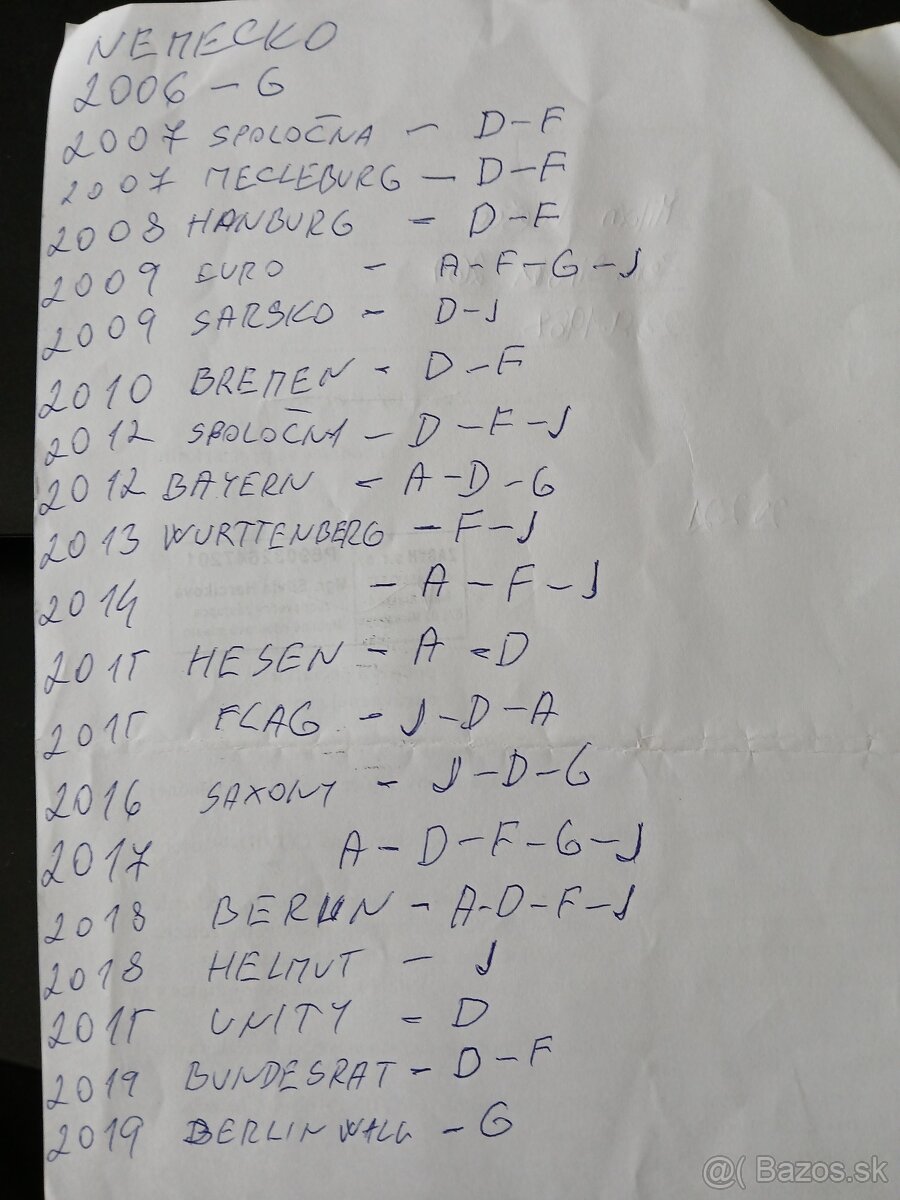 NEMECKO
2006 - G
2007 SPOLOČNA - D-F
2007 MECLEBURG - D-F
2008 HANBURG - D-F
2009 EURO - A-F-G-J
2009 SARSKO - D-J
2010 BREMEN - D-F
2012 SPOLOČNA - D-F-J
2012 BAYERN - A-D-G
2013 WURTTENBERG - F-J
2014 - A-F-J
2015 HESEN - A-D
2015 FLAG - J-D-A
2016 SAXONY - J-D-G
2017 A-D-F-G-J
2018 BERLIN - A-D-F-J
2018 HELMUT - J
2015 UNITY - D
2019 BUNDESRAT - D-F
2019 BERLIN WALL - G
@( Bazos.sk